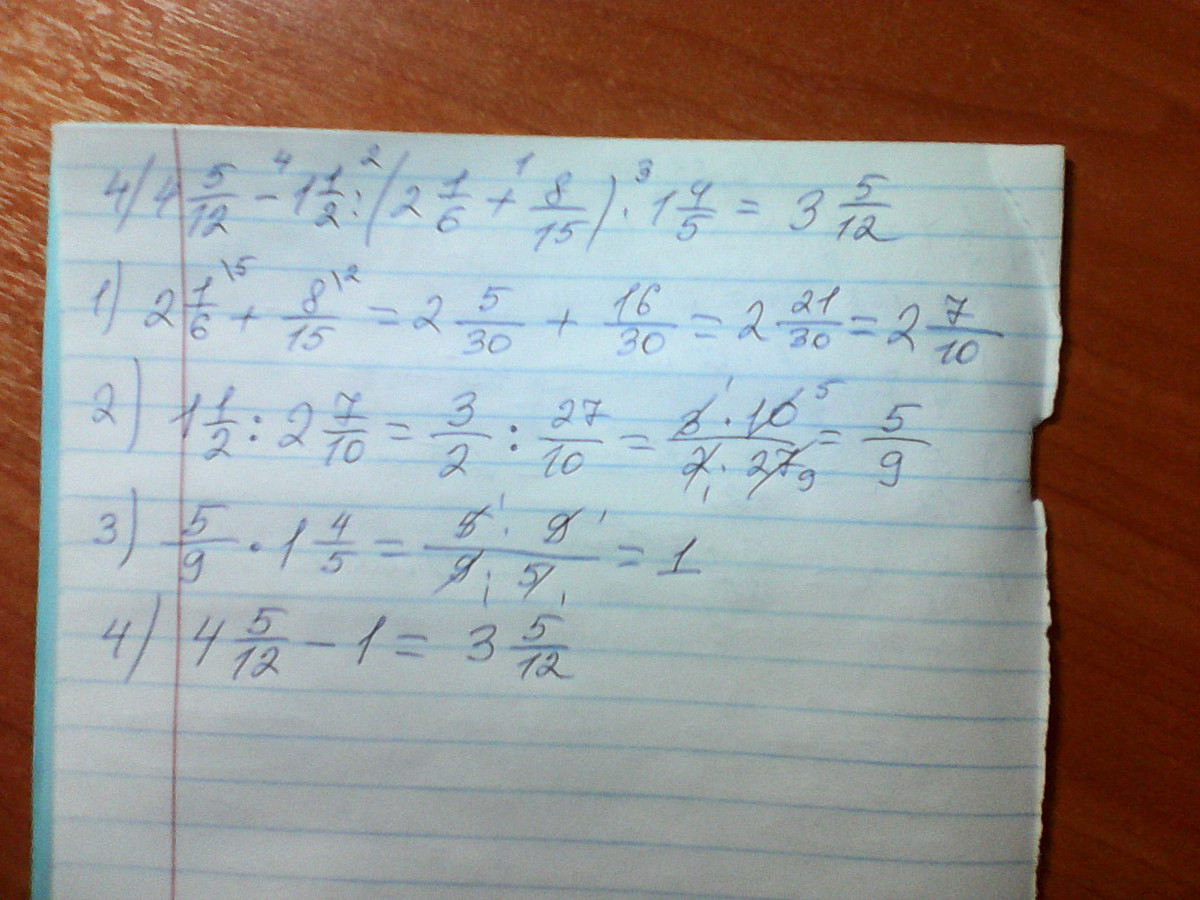 4) 4 5/12 -⁴ 1 1/2 :² (2 1/6 +¹ 8/15) ·³ 1 4/5 = 3 5/12
1) 2 1/6 \5 + 8/15 \2 = 2 5/30 + 16/30 = 2 21/30 = 2 7/10
2) 1 1/2 : 2 7/10 = 3/2 : 27/10 = 3 ¹ · 10 ⁵ / 2 ₁ · 27 ₉ = 5/9
3) 5/9 · 1 4/5 = 5 ¹ · 9 ¹ / 9 ₁ · 5 ₁ = 1
4) 4 5/12 - 1 = 3 5/12